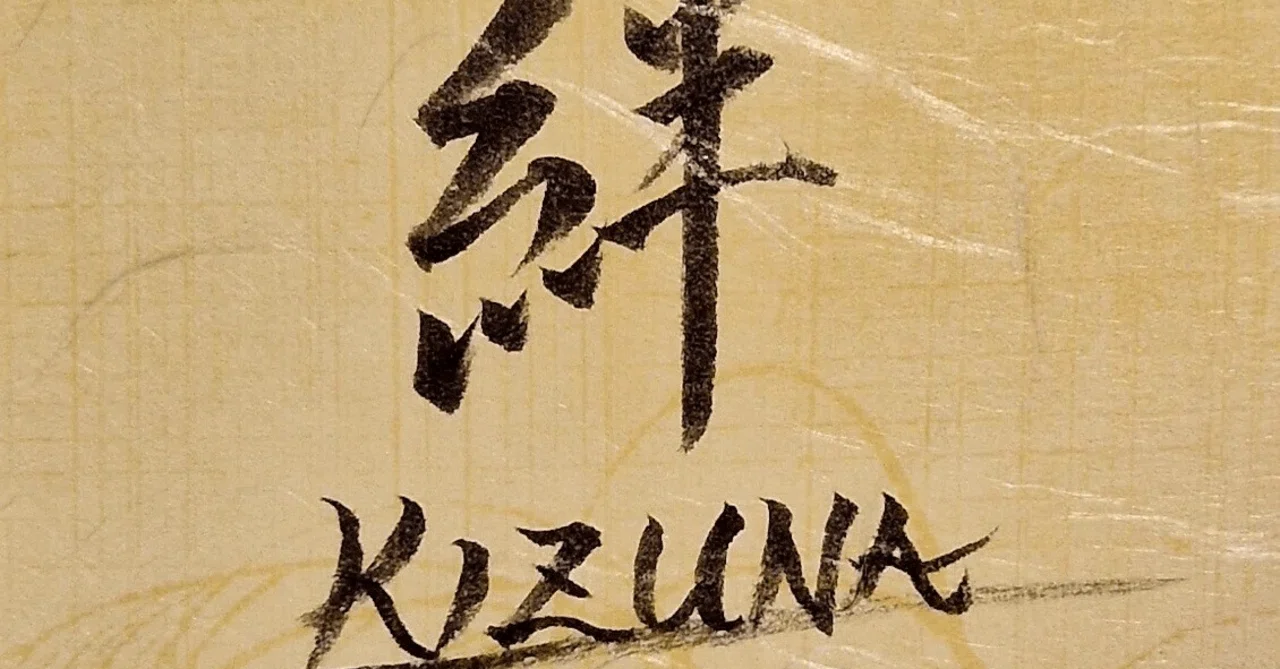 絆
KIZUNA